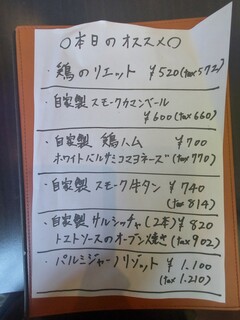 ○本日のオススメ○
・鶏のリエット ¥520(tax572)
・自家製 スモークカマンベール
¥600(tax660)
・自家製 鶏ハム ¥700
ホワイトバルサミコマヨネーズ(tax770)
・自家製 スモーク牛タン ¥740
(tax814)
・自家製 サルシッチャ(2本)¥820
トマトソースのオーブン焼き(tax902)
・パルミジャーノリゾット ¥1.100
(tax1.210)